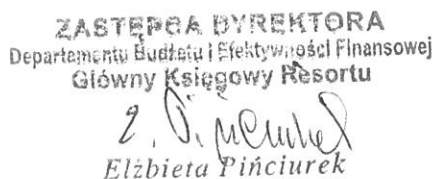 ZASTĘPCA DYREKTORA
Departamentu Budżetu i Efektywności Finansowej
Główny Księgowy Resortu
E. Pińciurek
Elżbieta Pińciurek